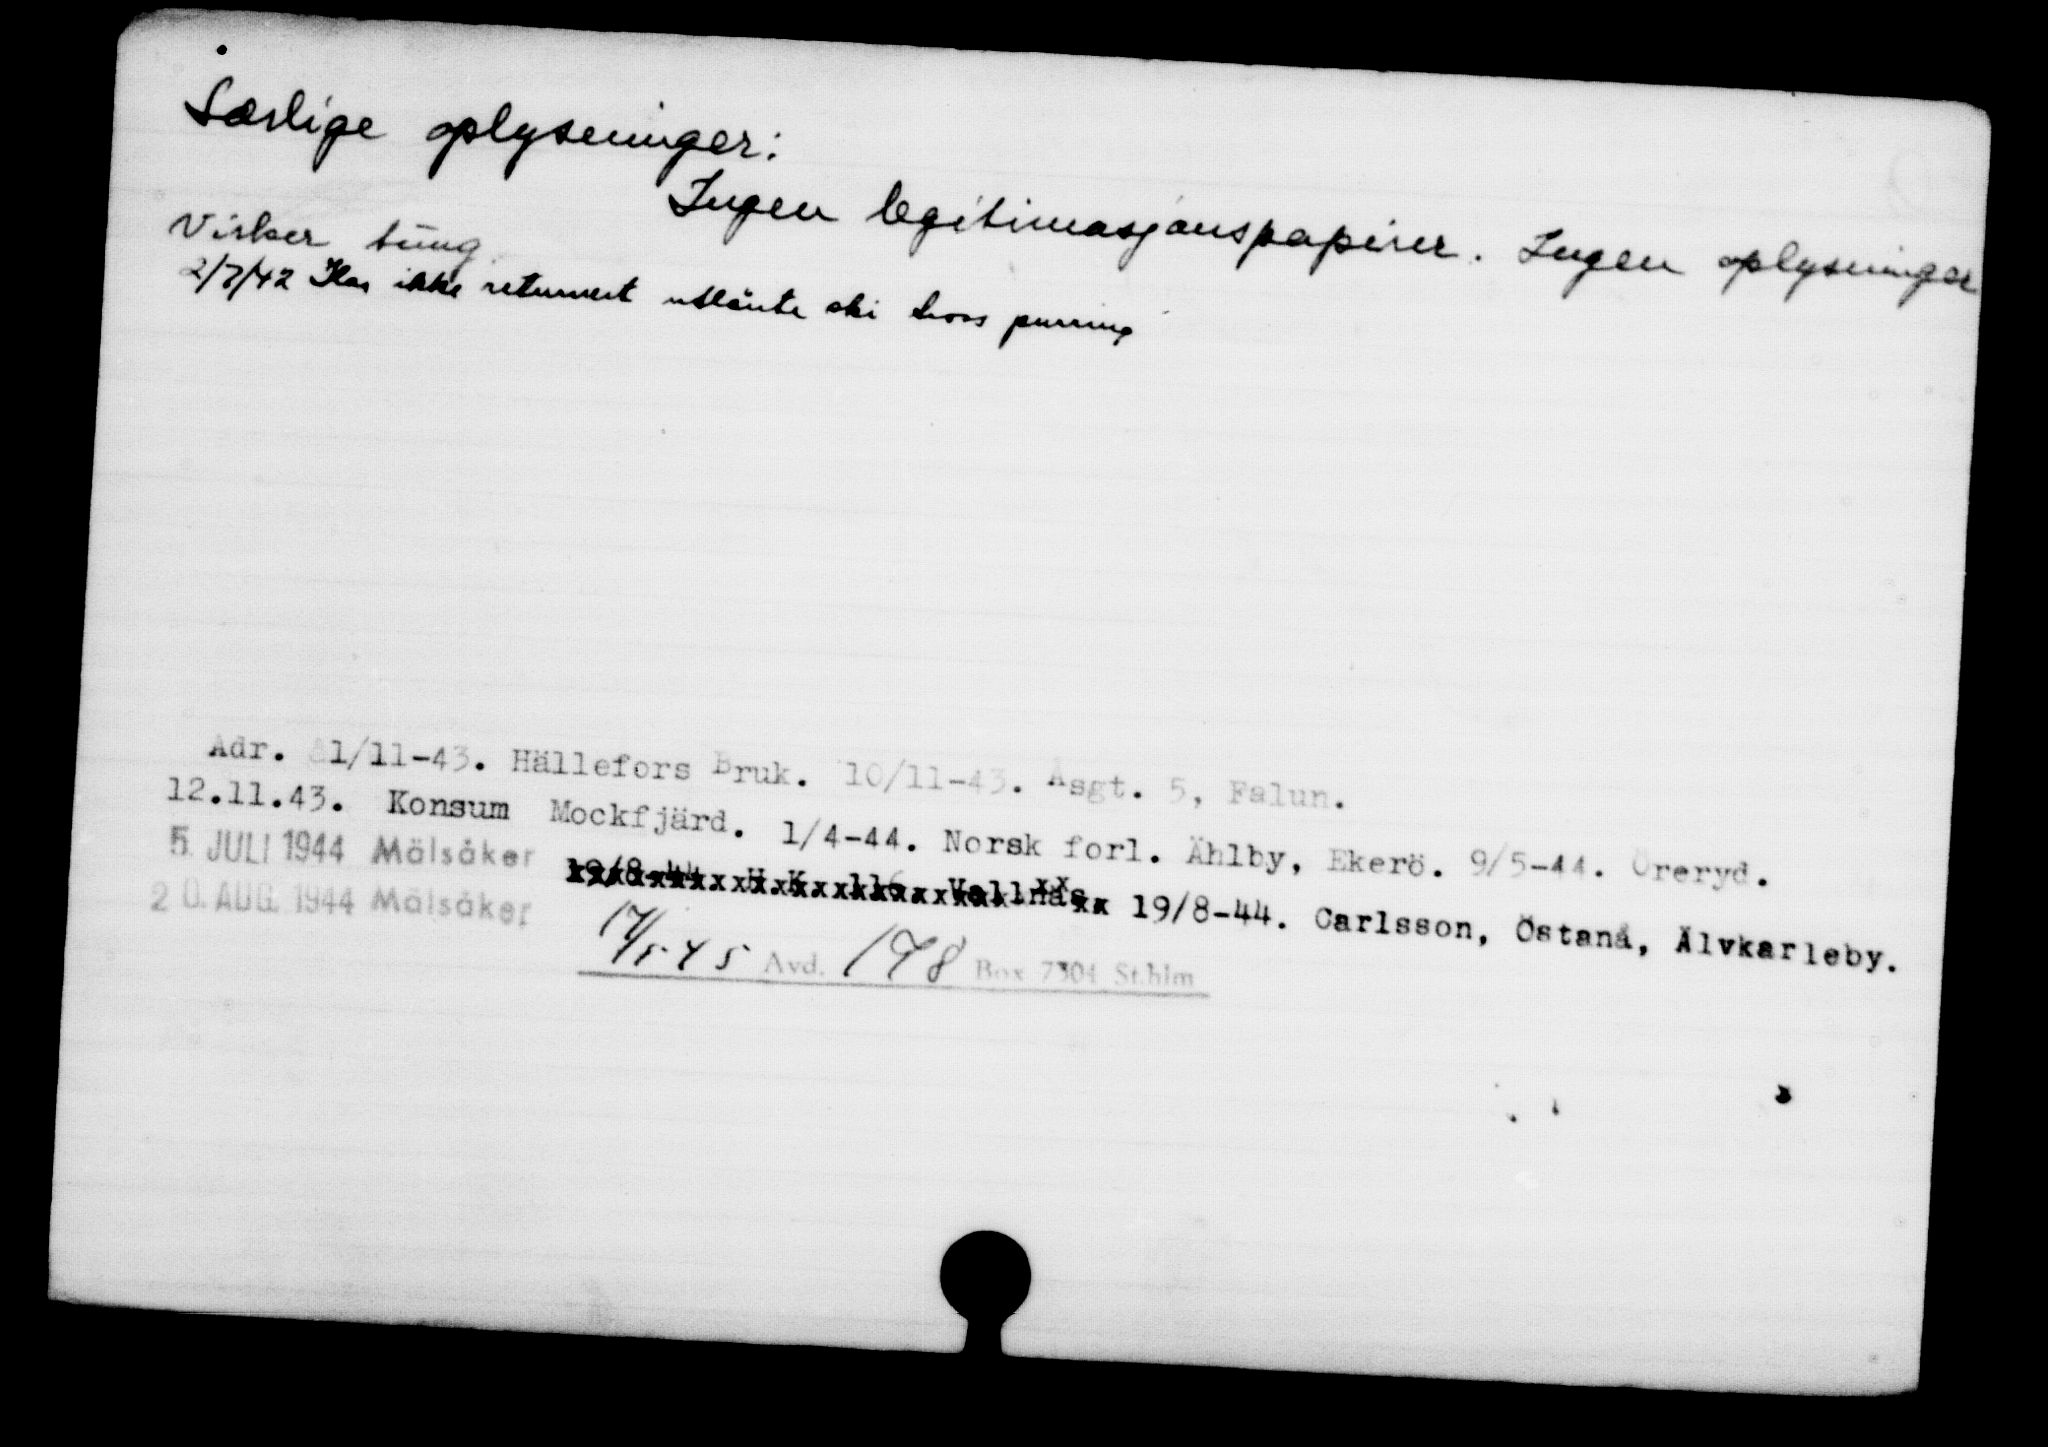 Særlige oplysninger:
Ingen legitimasjonspapirer. Ingen oplysninger
Virker tung.
2/7/42 Har ikke returnert utlånte ski tross purring
Adr. 1/11-43. Hällefors Bruk. 10/11-43. Åsgt. 5, Falun.
12.11.43. Konsum Mockfjärd. 1/4-44. Norsk forl. Ählby, Ekerö. 9/5-44. Öreryd.
5. JULI 1944 Mälsåker
19/8-44. Carlsson, Östanå, Älvkarleby.
20. AUG. 1944 Mälsåker
17/5-45 Avd. 178 Box 7304 St.hlm